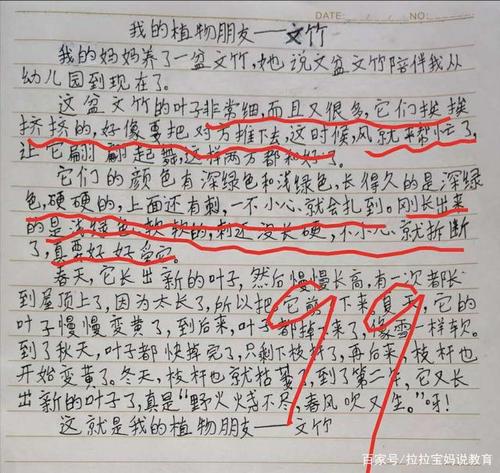 DATE: / / NO.
我的植物朋友——文竹
我的妈妈养了一盆文竹,她说文盆文竹陪伴我从
幼儿园到现在了。
这盆文竹的叶子非常细而且又很多,它们挨挨
挤挤的,好像要把对方推下去,这时候,风就来帮忙了,
让它翩翩起舞,这样两方都和好了。
它们的颜色有深绿色和浅绿色,长得久的是深绿
色,硬硬的,上面还有刺,一不小心就会扎到。刚长出来
的是浅绿色,软软的,刺还没长硬,不小心就折断
了,真要好好爱它。
春天,它长出新的叶子,然后慢慢长高,有一次都长
到屋顶上了,因为太长了,所以把它剪下来,夏天,它的
叶子慢慢变黄了,到后来,叶子都掉下来了,像雪一样软。
到了秋天,叶子都快掉完了,只剩下枝杆了,再后来,枝杆也
开始变黄了。冬天,枝杆也就枯萎了,到了第二年,它又长
出新的叶子了,真是“野火烧不尽,春风吹又生。”呀!
这就是我的植物朋友——文竹
99
百家号/拉拉宝妈说教育